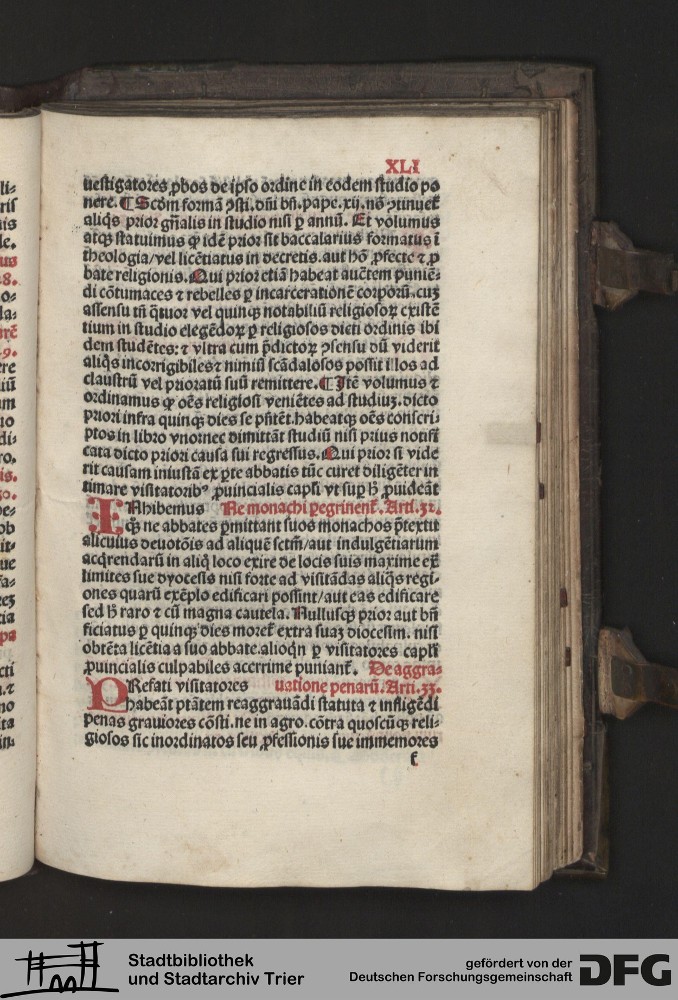 XLI
uestigatores ꝓbos de ipso ordine in eodem studio po
nere. ¶ Scḋm formā ↄsti. dñi bñ. pape. xij. nō ↄtinueꝉ
aliq̄s prior gn̄alis in studio nisi ꝑ annū. Et volumus
atqꝫ statuimus ꝙ idē prior sit baccalarius formatus ī
theologia/vel licētiatus in decretis. aut hō ꝓfecte ⁊ ꝓ
bate religionis. Qui prior etiā habeat auc̄tem puniē⸗
di cōtumaces ⁊ rebelles ꝑ incarcerationē corporū. cuꝫ
assensu tn̄ q̄tuor vel quinqꝫ notabiliū religiosoꝝ existē
tium in studio elegēdoꝝ ꝑ religiosos dicti ordinis ibi
dem studētes: ⁊ vltra cum p̄dictoꝝ ↄsensu dū viderit
aliq̄s incorrigibiles ⁊ nimiū scādalosos possit illos ad
claustrū vel prioratū suū remittere. ¶ Itē volumus ⁊
ordinamus ꝙ oēs religiosi veniētes ad studiuꝫ. dicto
priori infra quinqꝫ dies se p̄sitēt. habeatqꝫ oēs conscri⸗
ptos in libro vnornec dimittāt studiū nisi prius notifi
cata dicto priori causa sui regressus. Qui prior si vide
rit causam iniustā ex ꝑte abbatis tūc curet diligēter in
timare visitatoribꝰ ꝓuincialis capl̄i vt suꝑ h̄ ꝓuideāt
INhibemus Ne monachi ꝑegrinent̄. Arti. 32.
qꝫ ne abbates ꝑmittant suos monachos p̄textu
alicuius deuotōis ad aliquē sct̄m/aut indulgētiarum
acq̄rendarū in aliq̄ loco exire de locis suis maxime ex̄
limites sue dyocesis nisi forte ad visitādas aliq̄s regi⸗
ones quarū exēplo edificari possint/aut eas edificare
sed h̄ raro ⁊ cū magna cautela. Nullusqꝫ prior aut bn̄
ficiatus ꝑ quinqꝫ dies moret̄ extra suaꝫ diocesim. nisi
obtēta licētia a suo abbate. alioqn̄ ꝑ visitatores capl̄i
ꝓuincialis culpabiles acerrime puniant̄. De aggra⸗
PRefati visitatores uatione penarū. Arti. 33.
habeāt ptātem reaggrauādi statuta ⁊ infligēdi
penas grauiores cōsti. ne in agro. cōtra quoscūqꝫ reli⸗
giosos sic inordinatos seu ꝓfessionis sue immemores
f
li⸗
ris
le.
us
8.
o⸗
la⸗
9.
ere
iū
um
no
di⸗
ro.
is.
30.
ob
it⸗
ue
fa⸗
reꝫ
tia
pa
cti
no
ita
in⸗
Stadtbibliothek
und Stadtarchiv Trier
gefördert von der
Deutschen Forschungsgemeinschaft
DFG